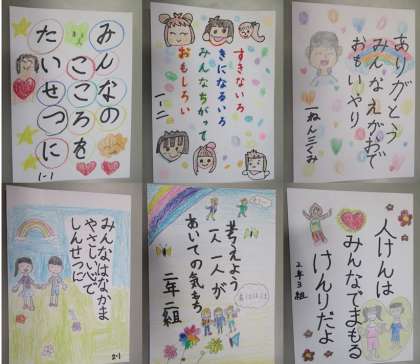 みんなの
こころを
たいせつに
1-1
すきないろ
きになるいろ
みんなちがって
おもしろい
一-二
ありがとう
みんなえがおで
おもいやり
一ねん三くみ
みんなはなかま
やさしい心で
しんせつに
2-1
考えよう
一人一人が
あいての気もち
二年二組
人けんは
みんなでまもる
けんりだよ
2年3組